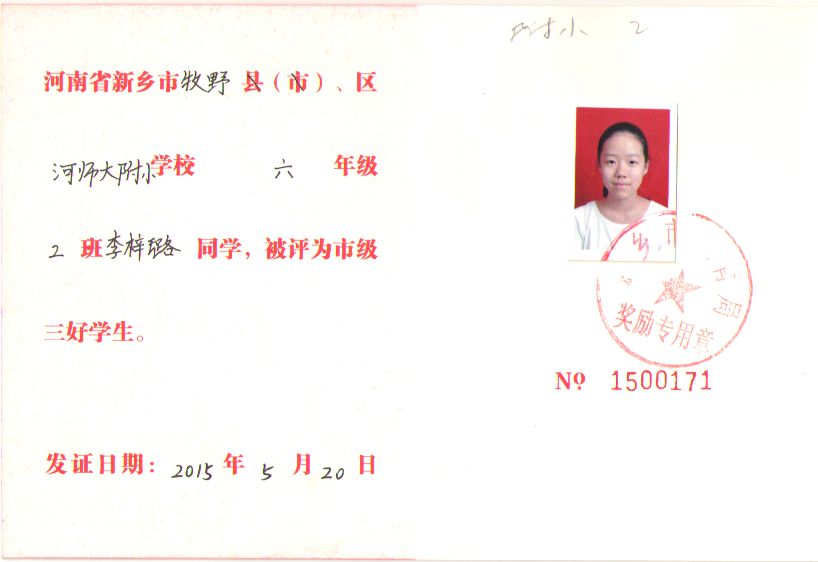 河南省新乡市牧野县（市）、区
河师大附小学校 六 年级
2 班李梓璐 同学，被评为市级
三好学生。
发证日期：2015 年 5 月 20 日
附小 2
乡市
局
奖励专用章
№ 1500171